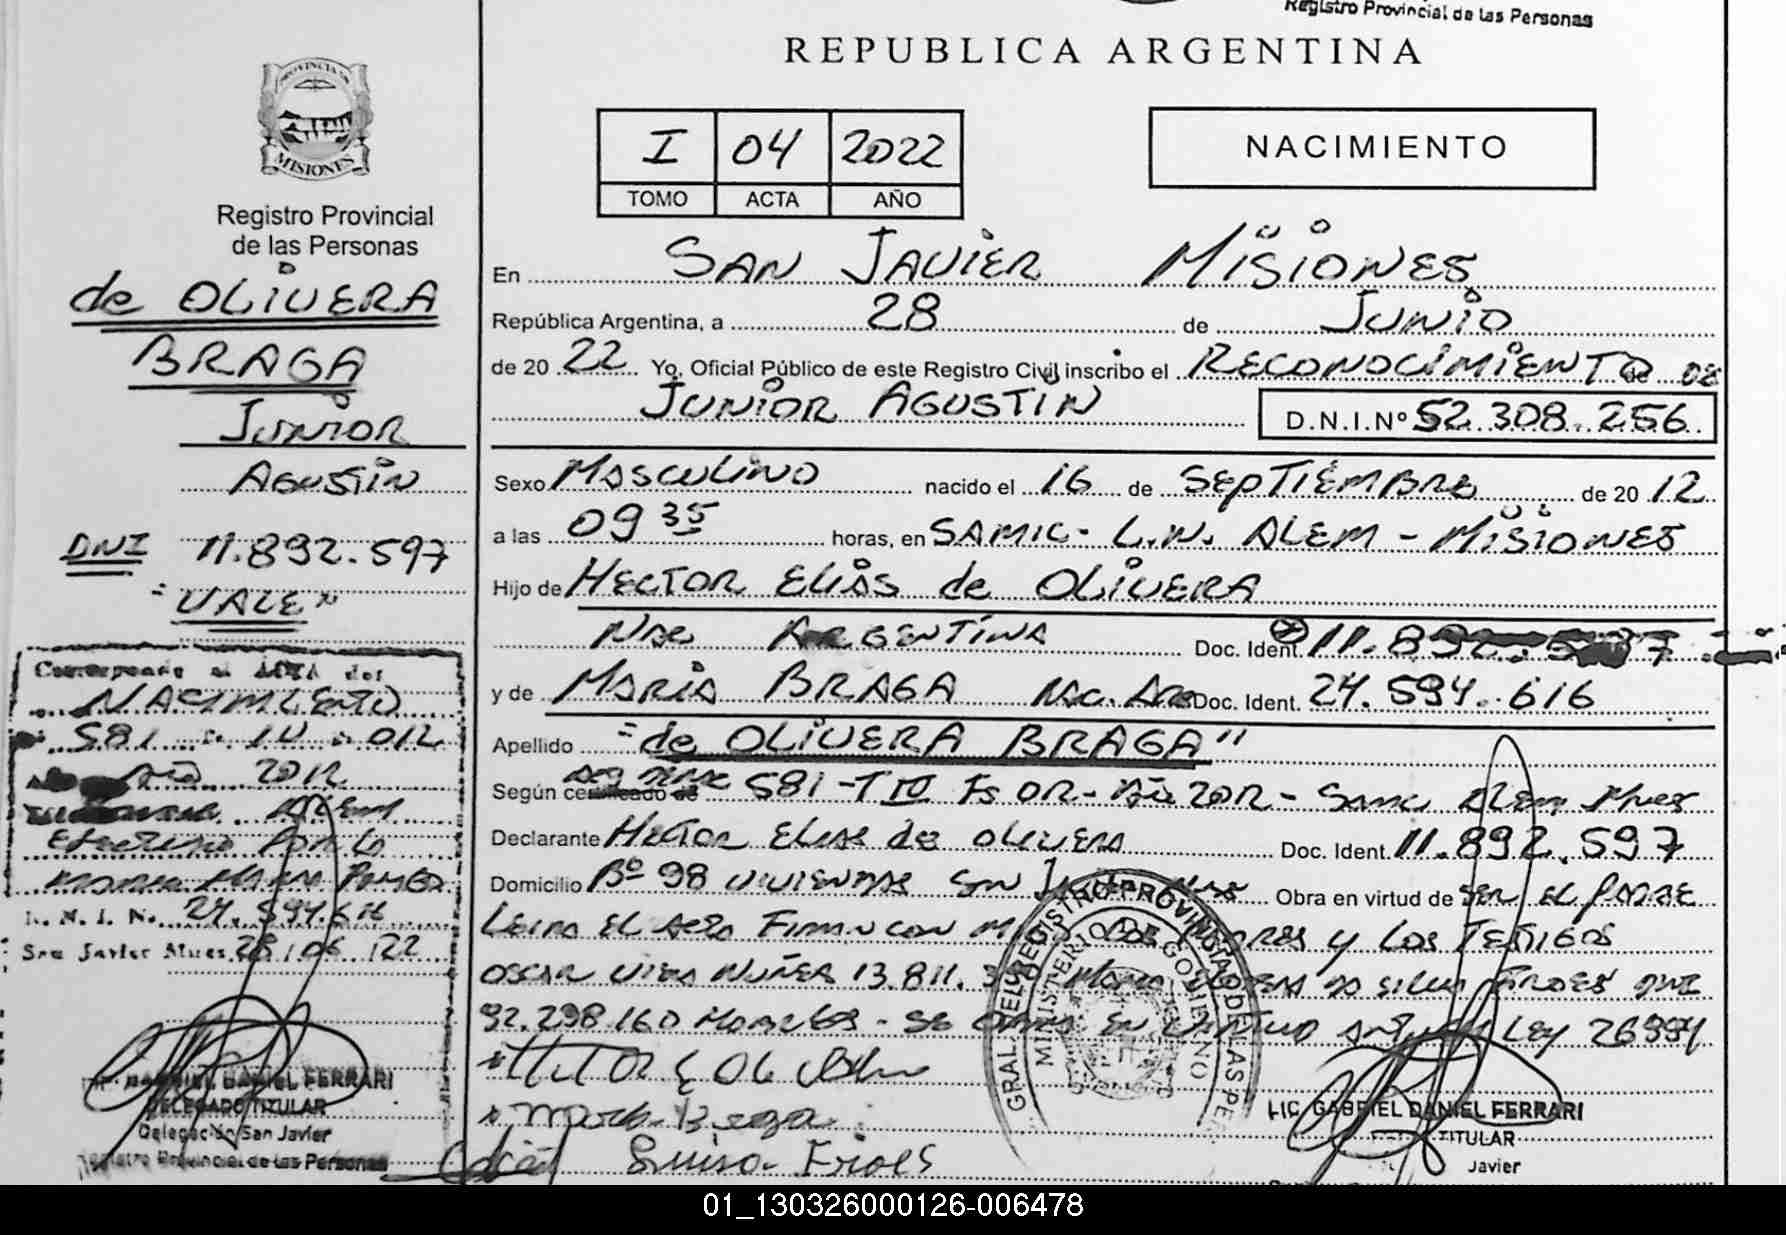 Registro Provincial de las Personas
REPUBLICA ARGENTINA
PROVINCIA DE
MISIONES
Registro Provincial
de las Personas
de OLIVERA
BRAGA
JUNIOR
AGUSTIN
DNI 11.892.597
"VALE"
Corresponde al ACTA de:
NACIMIENTO
581
Año 2012
ALEM
D. N. I. N. 24.594.616
San Javier Mnes 28/06/22
GABRIEL DANIEL FERRARI
DELEGADO TITULAR
Delegación San Javier
Registro Provincial de las Personas
I 04 2022
TOMO ACTA AÑO
NACIMIENTO
En SAN JAVIER MISIONES
República Argentina, a 28 de JUNIO
de 20 22 Yo, Oficial Público de este Registro Civil inscribo el RECONOCIMIENTO de
JUNIOR AGUSTIN D.N.I.Nº 52.308.256
Sexo MASCULINO nacido el 16 de SEPTIEMBRE de 20 12
a las 09 35 horas, en SAMIC - L.N. ALEM - MISIONES
Hijo de HECTOR ELIAS de OLIVERA
Nac ARGENTINA Doc. Ident. 11.892.597
y de MARIA BRAGA Nac. Arg Doc. Ident. 24.594.616
Apellido "de OLIVERA BRAGA"
Según certificado de 581 - T IV Fs 012 - Año 2012 - Samic Alem Mnes
Declarante Hector Elias de Olivera Doc. Ident. 11.892.597
Domicilio Bº 98 VIVIENDAS San Javier Mnes Obra en virtud de SER EL PADRE
Leida EL Acta Firman con y Los Testigos
OSCAR NUÑEZ 13.811. FROES DNI
92.298.160 - Ley 26994
Hector E de
Maria Braga
Luisa Froes
GRAL. DEL REGISTRO PROVINCIAL DE LAS PER
MINISTERIO DE GOBIERNO
LIC. GABRIEL DANIEL FERRARI
TITULAR
Javier
01_130326000126-006478